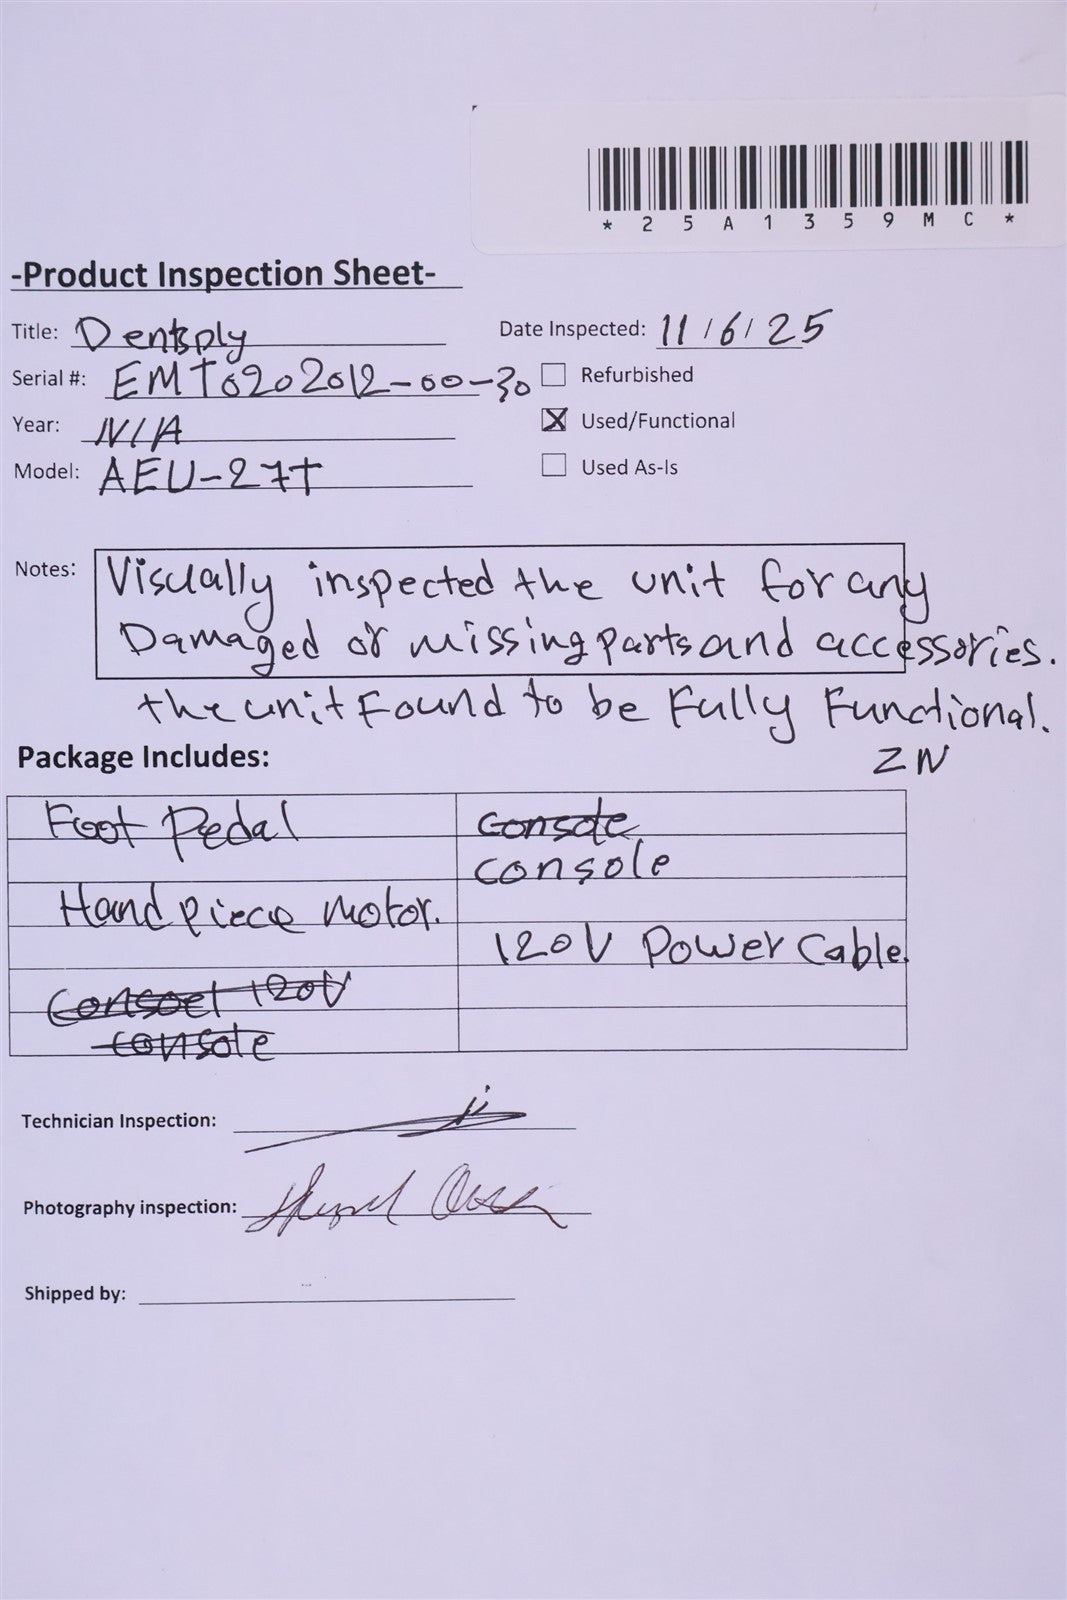 * 2 5 A 1 3 5 9 M C *
-Product Inspection Sheet-
Title: Dentsply
Date Inspected: 11/6/25
Serial #: EMT0202012-00-30
Refurbished
Year: N/A
Used/Functional
Model: AEU-27T
Used As-Is
Notes: Visually inspected the unit for any
Damaged or missing parts and accessories.
the unit Found to be Fully Functional.
ZN
Package Includes:
Foot Pedal
Console
console
Hand piece motor.
120V Power Cable.
Consoel 120V
console
Technician Inspection:
Photography inspection:
Shipped by: